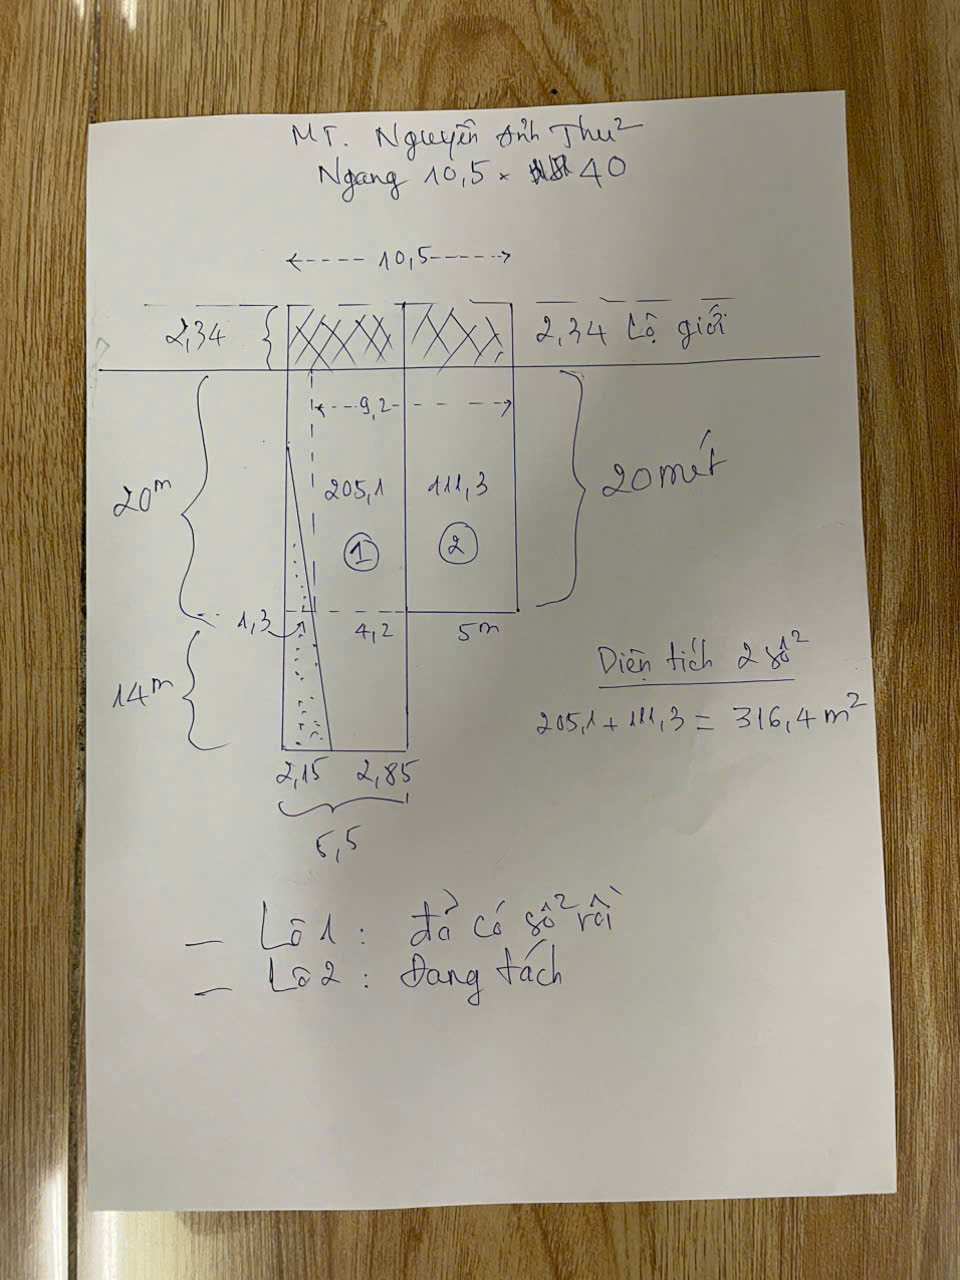 MT. Nguyễn Ảnh Thủ
Ngang 10,5 × 40
10,5
2,34
2,34 Lộ giới
9,2
20m
205,1
111,3
20 mét
1
2
1,3
4,2
5m
14m
Diện tích 2 sổ
205,1 + 111,3 = 316,4 m²
2,15
2,85
5,5
– Lô 1 : đã có sổ rồi
– Lô 2 : Đang tách